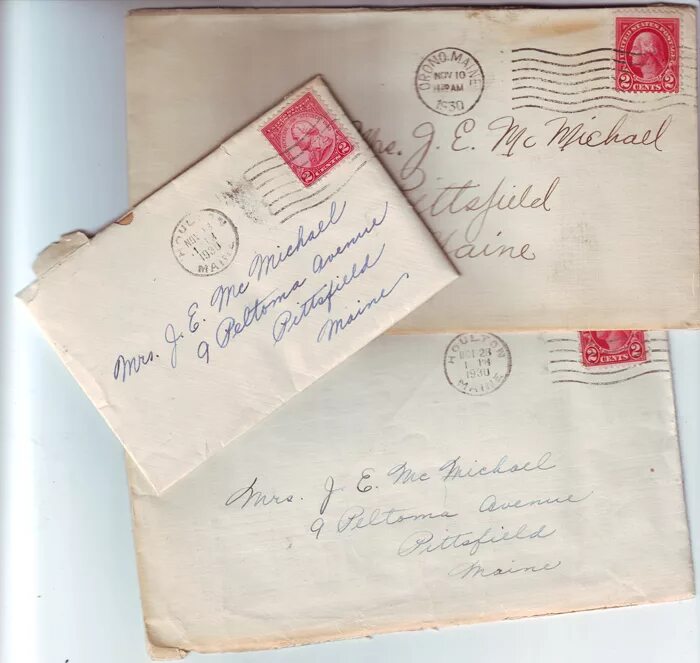 ORONO, MAINE
NOV 10
1930
UNITED STATES POSTAGE
2 CENTS 2
Mrs. J. E. McMichael
Pittsfield
Maine
2 CENTS 2
HOULTON
NOV
1930
MAINE
Mrs. J. E. McMichael
9 Peltoma Avenue
Pittsfield
Maine
2 CENTS 2
HOULTON
23
1930
MAINE
Mrs. J. E. McMichael
9 Peltoma Avenue
Pittsfield
Maine